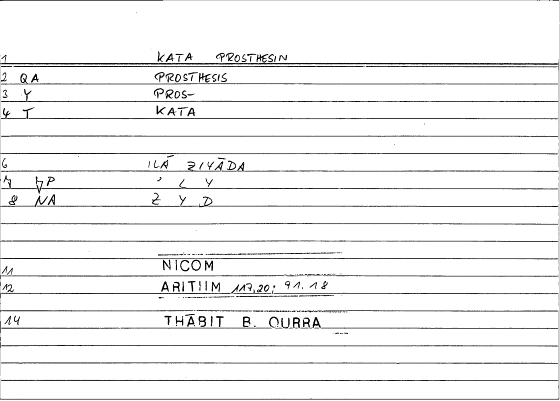 1 KATA PROSTHESIN
2 QA PROSTHESIS
3 Y PROS-
4 T KATA
6 ILĀ ZIYĀDA
P ʾ L Y
8 NA Z Y D
11 NICOM
12 ARITIIM 117,20; 91.18
14 THĀBIT B. QURRA